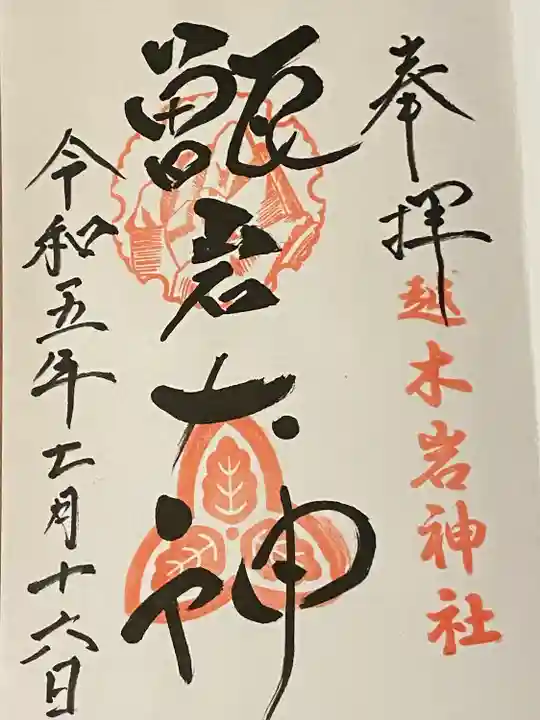 奉拝
越木岩神社
甑岩大神
令和五年七月十六日